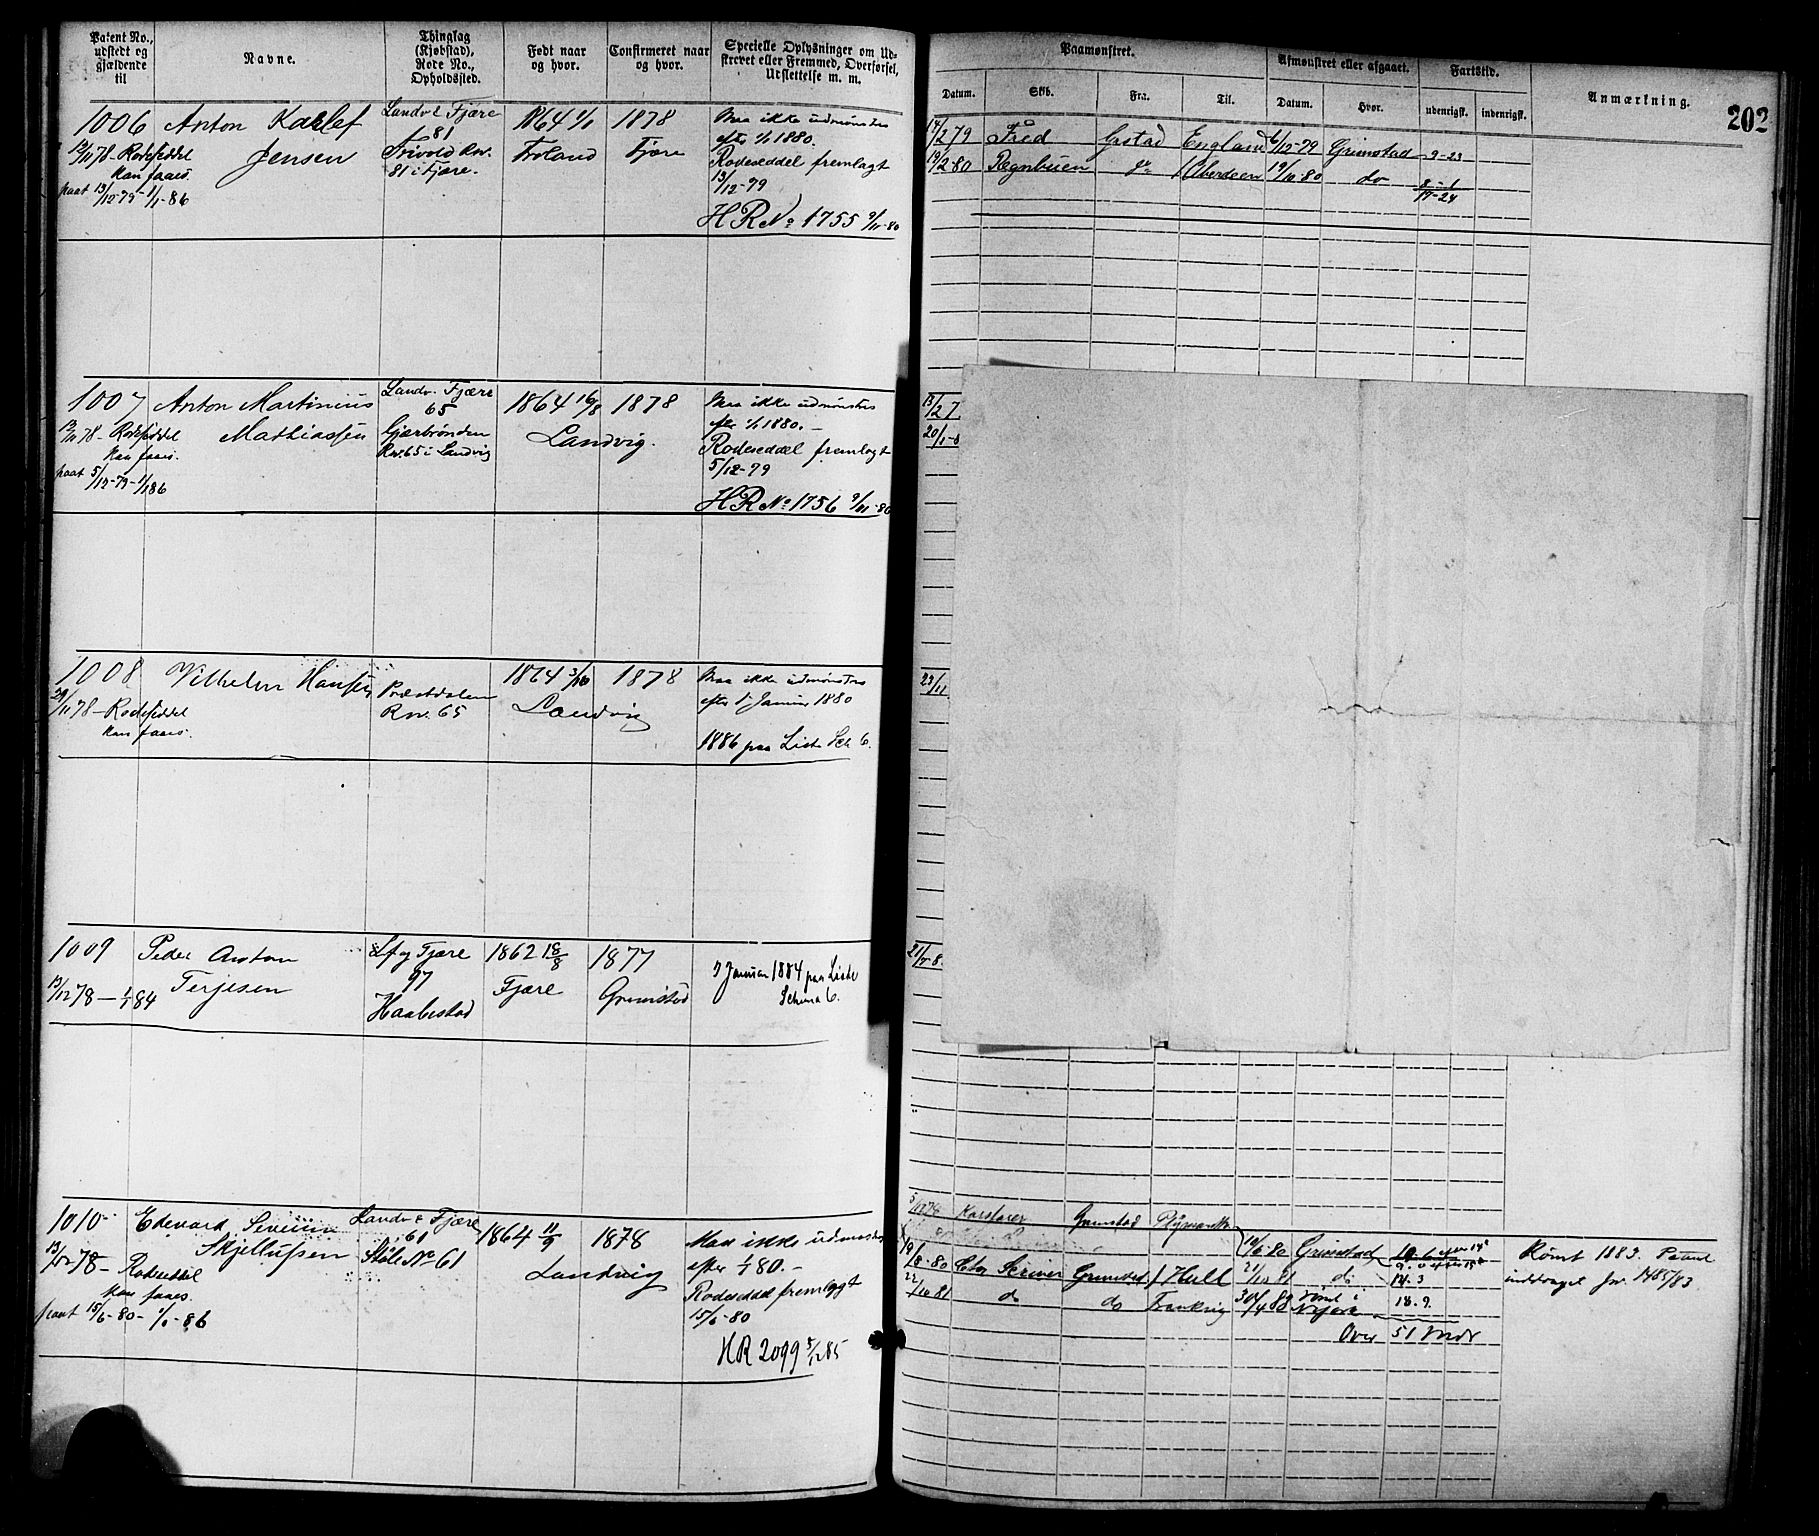 Patent No., udstedt og gjældende til
Navne.
Thinglag (Kjøbstad), Rode No., Opholdssted.
Født naar og hvor.
Confirmeret naar og hvor.
Specielle Oplysninger om Udskrevet eller Fremmed, Overførsel, Udslettelse m. m.
Paamønstret.
Afmønstret eller afgaaet.
Fartstid.
Anmærkning.
202
Datum.
Skib.
Fra.
Til.
Datum.
Hvor.
udenrigsk.
indenrigsk.
1006 Anton Karlef Jensen
13/11 78 - Rodeseddel
kan faaes.
paat 13/12-79-1/1-86
Landv & Fjære
81
Frivold Rn.
81 i Fjære.
1864 1/1
Froland
1878
Fjære
Maa ikke udmønstres
efter 1/1 1880.
Rodeseddel fremlagt
13/12-79
HR No 1755 9/11-80
14/2 79 Fred Gstad England 6/12-79 Grimstad 9-23
14/2-80 Regnbuen do Aberdeen 19/10-80 do 8-1
17-24
1007 Anton Martinius
Mathiassen
13/11 78 - Rodeseddel
kan faaes.
paat 5/12-79-1/1 86
Landv. Fjære
65
Gjærbrønden
Rn. 65 i Landvig
1864 16/8 1878
Landvig.
Maa ikke udmønstres
efter 1/1 1880. -
Rodeseddel fremlagt
5/12-79
HR No 1756 9/11-80
13/2 7
20/1-8
1008 Vilhelm Hansen
29/11 78 - Rodeseddel
kan faaes.
Præstdalen
Rn. 65
1864 3/10 1878
Landvig
Maa ikke udmønstres
efter 1 Januar 1880
1886 paa Liste Sch 6.
23/11
1009 Peder Anton
Terjesen
13/12 78 - 1/1 84
Lf og Fjære
97
Haabestad
1862 18/8
Fjære
1877
Grimstad
1 Januar 1884 paa Liste
Schema 6.
1010 Edevard Severin
Skjellufsen
13/12 78 - Rodeseddel
kan faaes.
paat 15/6-80-1/1-86
Landv & Fjære
61
Støle No 61
1864 11/9 1878
Landvig
Maa ikke udmønstres
efter 1/1 80. -
Rodeseddel fremlagt
15/6-80
HR 2099 5/12 85
5/12 78 Grimstad Plymouth 10/6-80 Grimstad
19/8-80 Grimstad Hull 21/10 81 do 14.3
22/10 81 do do 30/4 83 18.9.
Over 51 Mdr
Rømt 1883. Patent
inddraget Jnr. 1485/83